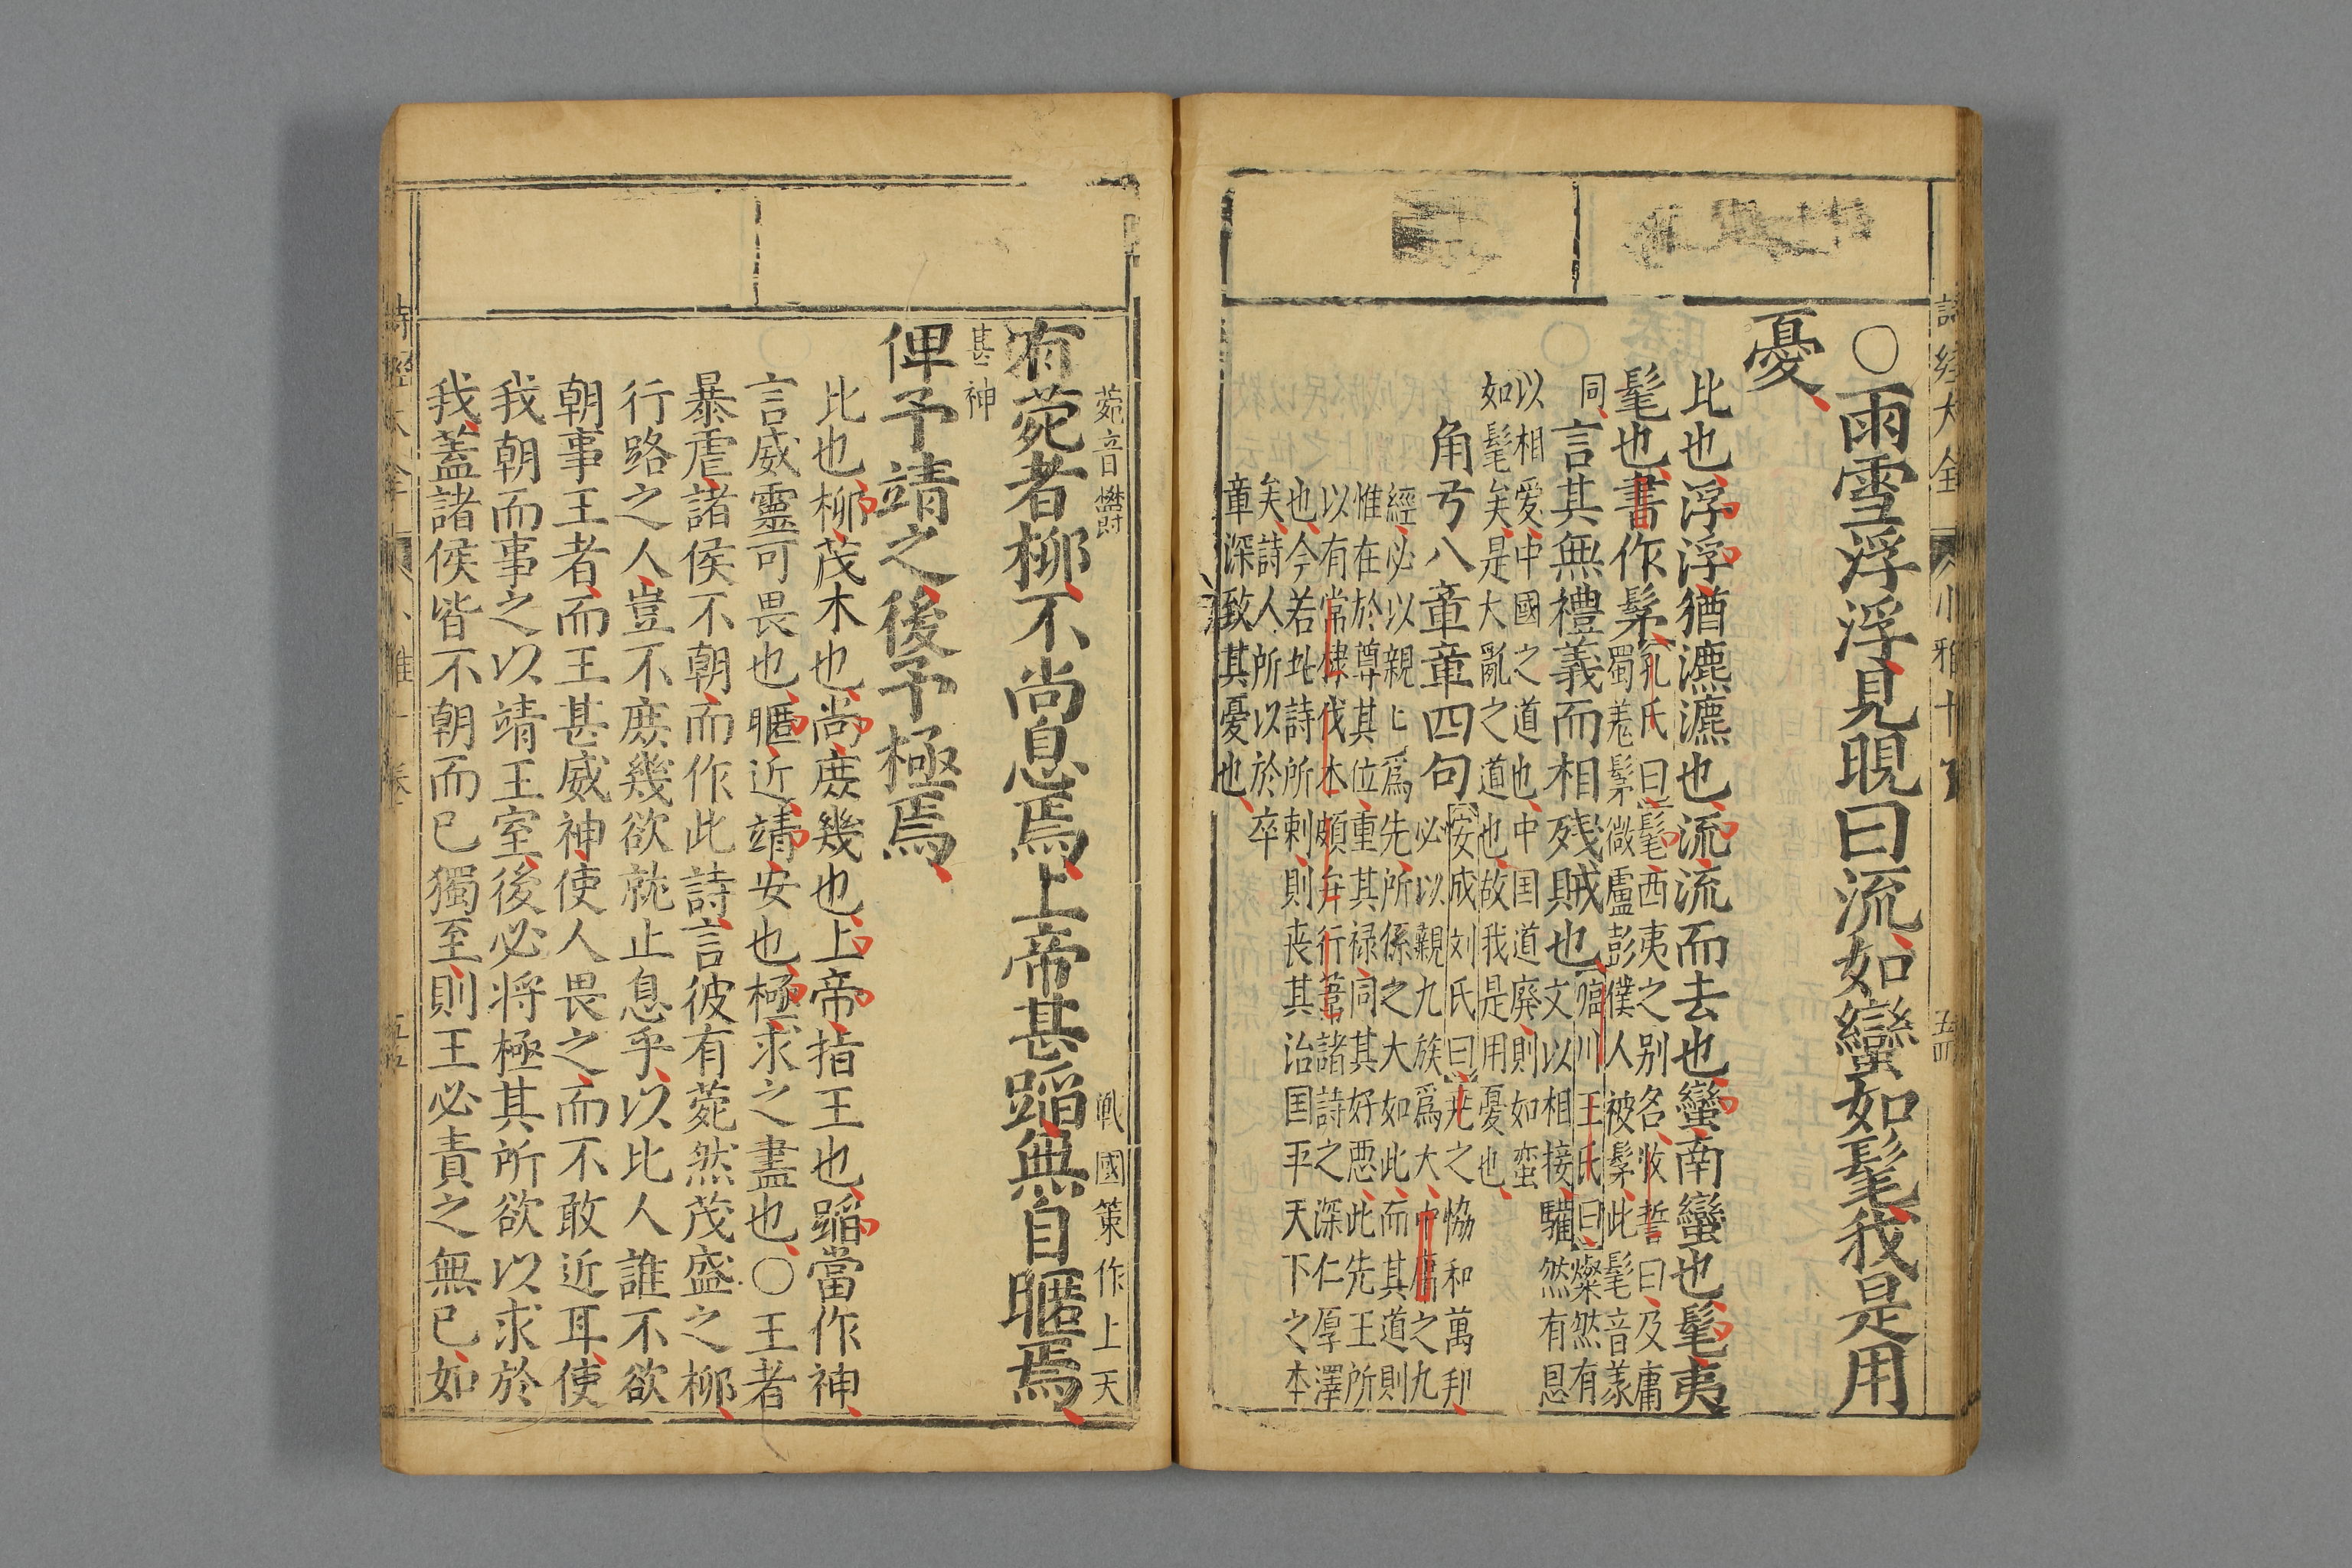 詩經大全
小雅十
五四
○雨雪浮浮見晛曰流如蠻如髦我是用
憂
比也浮浮猶瀌瀌也流流而去也蠻南蠻也髦夷
髦也書作髳
孔氏曰髦西夷之别名牧誓曰及庸
蜀羌髳微盧彭僕人被髳此髦音義
同
言其無禮義而相殘賊也
臨川王氏曰燦然有
文以相接驩然有恩
以相愛中國之道也中国道廃則如蛮
如髦矣是大亂之道也故我是用憂也
角弓八章章四句
安成刘氏曰尭之恊和萬邦
必以親九族爲大中庸之九
經必以親亲爲先所係之大如此而其道則
惟在於尊其位重其禄同其好悪此先王所
以有常棣伐木頍弁行葦諸詩之深仁厚澤
也今若此詩所刺則丧其治国平天下之本
矣詩人所以於卒
章深致其憂也
菀音欝
戰國策作上天
有菀者柳不尚息焉上帝甚蹈無自暱焉
甚神
俾予靖之後予極焉
比也柳茂木也尚庻幾也上帝指王也蹈當作神
言威靈可畏也暱近靖安也極求之盡也○王者
暴虐諸侯不朝而作此詩言彼有菀然茂盛之柳
行路之人豈不庻幾欲就止息乎以比人誰不欲
朝事王者而王甚威神使人畏之而不敢近耳使
我朝而事之以靖王室後必将極其所欲以求於
我蓋諸侯皆不朝而已獨至則王必責之無已如
詩經大全
小雅十
五五